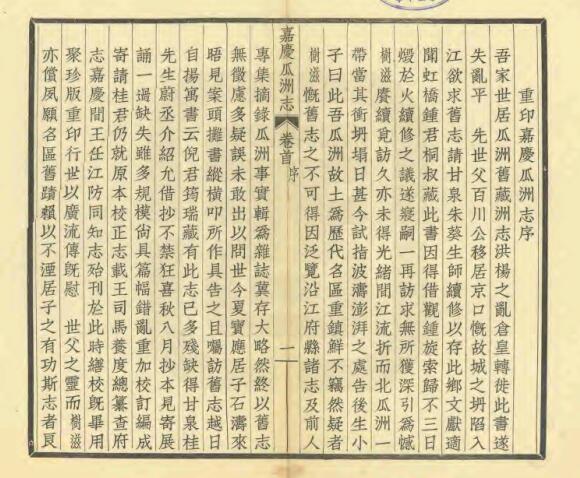 重印嘉慶瓜洲志序
吾家世居瓜洲舊藏洲志洪楊之亂倉皇轉徙此書遂
失亂平 先世父百川公移居京口慨故城之坍陷入
江欲求舊志請甘泉朱葵生師續修以存此鄉文獻適
聞虹橋鍾君桐叔藏此書因得借觀鍾旋索歸不三日
燬於火續修之議遂寢嗣一再訪求無所獲深引為憾
樹滋賡續覓訪久亦未得光緒間江流折而北瓜洲一
帶當其衝坍塌日甚今試指波濤澎湃之處告後生小
子曰此吾瓜洲故土為歷代名區重鎮鮮不竊然疑者
樹滋慨舊志之不可得因泛覽沿江府縣諸志及前人
嘉慶瓜洲志 卷首 序 一
專集摘錄瓜洲事實輯為雜誌冀存大略然終以舊志
無徵慮多疑誤未敢出以問世今夏寶應居子石濤來
晤見案頭攤書縱橫叩所作具告之且囑訪舊志越日
自揚寓書云倪君筠瑞藏有此志已多殘缺得甘泉桂
先生蔚丞介紹允借抄不禁狂喜秋八月抄本見寄展
誦一過缺失雖多規模尙具篇幅錯亂重加校訂編成
寄請桂君仍就原本校正志載王司馬養度總纂查府
志嘉慶間王任江防同知志殆刊於此時繕校旣畢用
聚珍版重印行世以廣流傳旣慰 世父之靈而樹滋
亦償夙願名區舊蹟賴以不湮居子之有功斯志者良